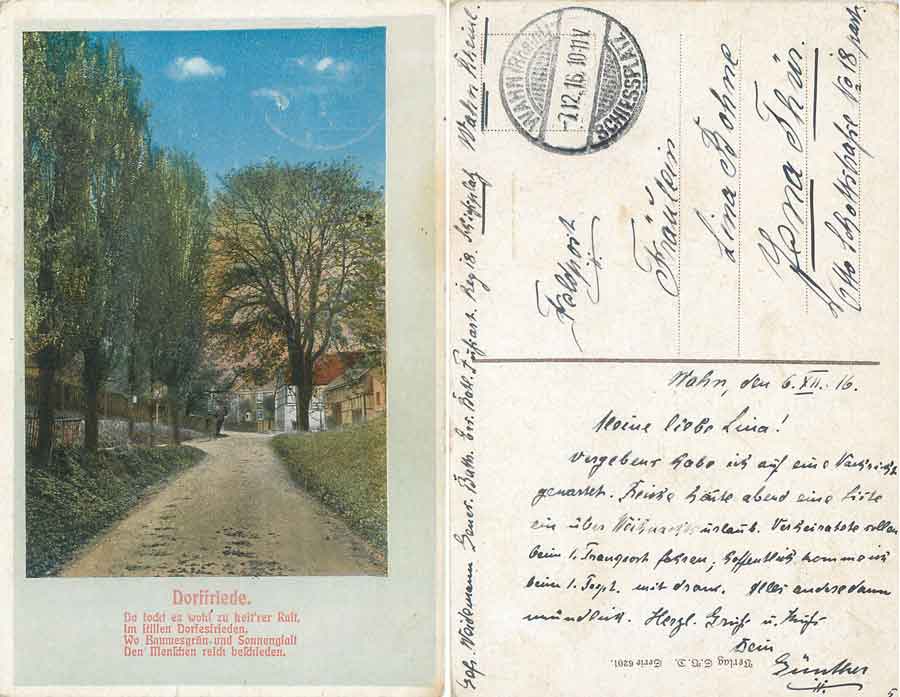 Dorffriede.
Da lockt es wohl zu heit'rer Rast,
Im stillen Dorfesfrieden,
Wo Baumesgrün und Sonnenglast
Den Menschen reich beschieden.
WAHN (Rheinl)
-7.12.16. 10-11 V
SCHIESSPLATZ
Feldpost
Fräulein
Lina Bohne
Jena Thür.
Otto Schottstraße No 18 part.
Gefr. Weidemann Batl. Fußart. Reg 18. Schießplatz Wahn Rheinl.
Wahn, den 6. XII. 16.
Meine liebe Lina!
Vergebens habe ich auf eine Nachricht
gewartet. heute abend eine Liste
ein über Weihnachtsurlaub. Verheiratete sollen
beim 1. Transport fahren, hoffentlich komme ich
beim 1. mit dran. Alles andre dann
mündlich. Herzl. Gruß u. Kuß
Dein
Günther
Verlag G.F.D. Serie 6201.